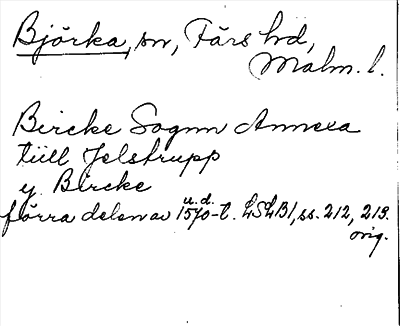 Björka, sn, Färs hd,
Malm. l.
Bircke Sognn Annexa
tiill Jelstrupp
y Bircke
förra delen av 1570-t. u.d. LSLB1, ss. 212, 213.
orig.